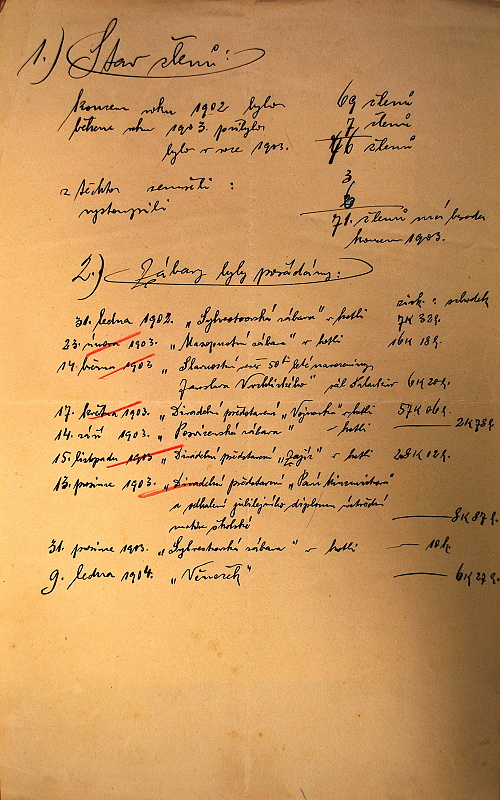 1.) Stav členů:
koncem roku 1902 bylo 69 členů
během roku 1903. přibylo 7 členů
bylo v roce 1903. 76 členů
z těchto zemřeli: 3
vystoupili
71. členů má beseda
koncem 1903.
2.) Zábavy byly pořádány:
zisk: schodek
31. ledna 1902. „Sylvestrovská zábava" v hotli 7K 32h.
23. února 1903. „Masopustní zábava" v hotli 16K 18h.
14. března 1903 „Slavnostní 50ti leté narozeniny
Jaroslava Vrchlického" sál 6K 20h.
17. května 1903. „Divadelní představení „Vojnarka" v hotli 57K 06h.
14. září 1903. „Posvícenská zábava" v hotli — 2K 78h.
15. listopadu 1903 „Divadelní představení „Zajíc" v hotli 28K 12h.
13. prosince 1903. „Divadelní představení „Paní
a odhalení jubilejního diplomu ústřední
matice školské — 8K 87h.
31. prosince 1903. „Sylvestrovská zábava" v hotli — 10h.
9. ledna 1904. „Věneček" — 6K 27h.